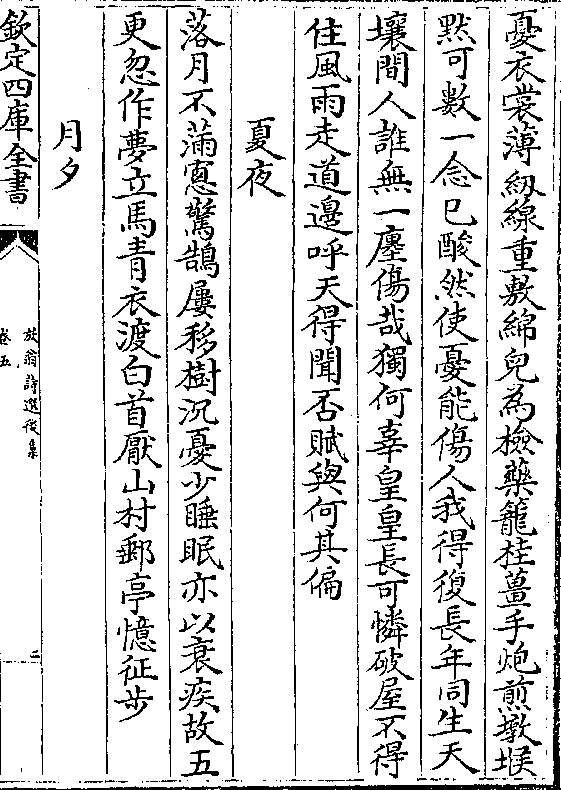 憂衣裳薄紉線重敷綿兒為檢藥籠桂薑手炮煎墩堠
黙可數一念已酸然使憂能傷人我得復長年同生天
壤間人誰無一廛傷哉獨何辜皇皇長可憐破屋不得
住風雨走道邊呼天得聞否賦與何其偏
夏夜
落月不滿窻驚鵲屢移樹沉憂少睡眠亦以衰疾故五
更忽作夢立馬青衣渡白首厭山村郵亭憶征步
月夕
欽定四庫全書
放翁詩選後集
卷五
二